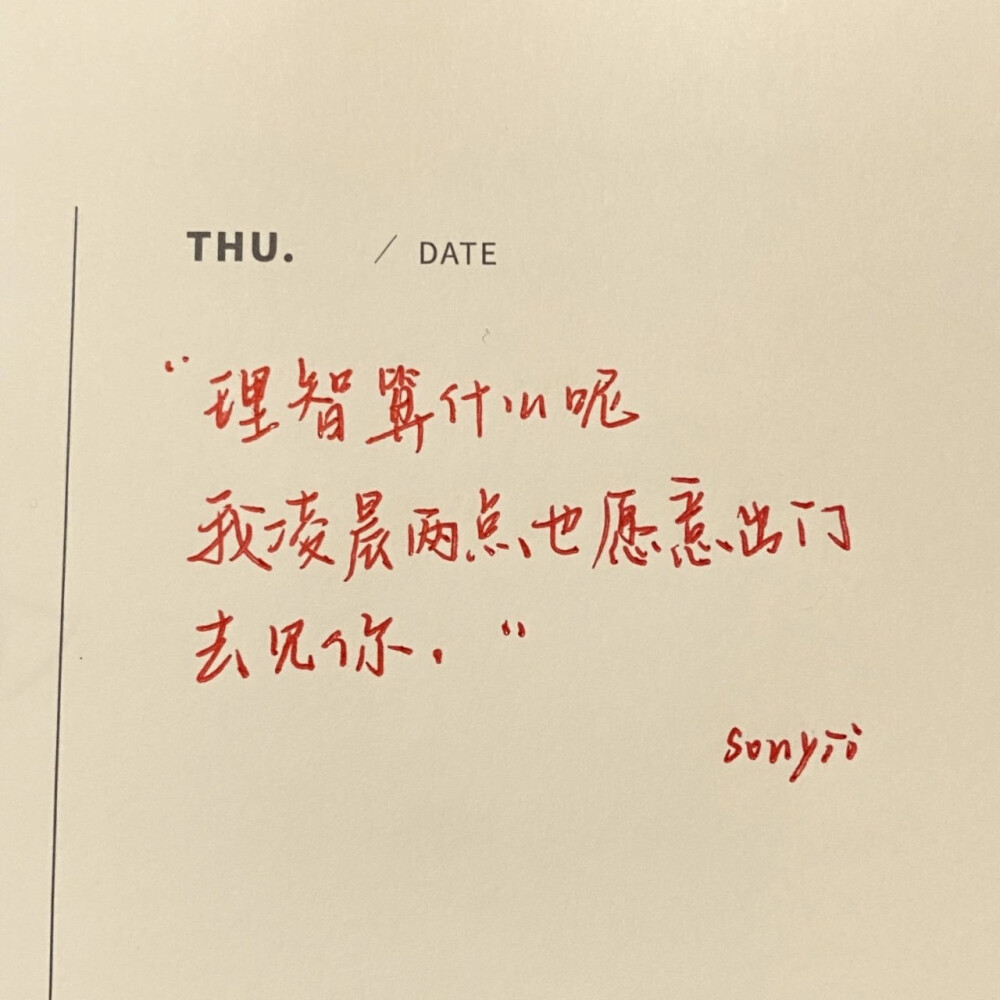 THU. / DATE
“理智算什么呢
我凌晨两点也愿意出门
去见你.”
sonyii